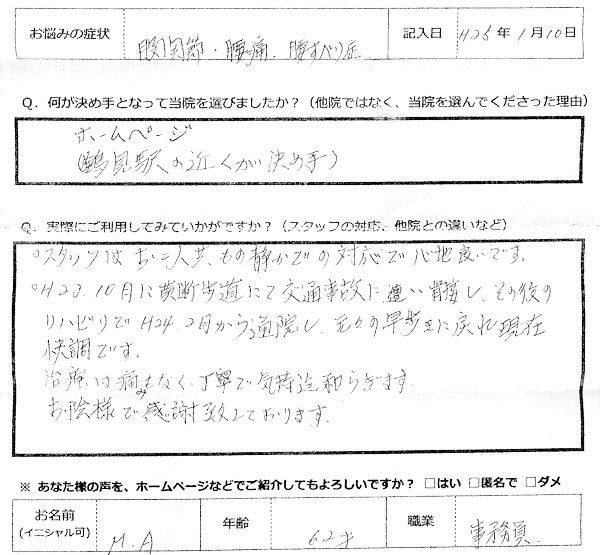 お悩みの症状 股関節・腰痛. 腰すべり症 記入日 H25年1月10日
Q. 何が決め手となって当院を選びましたか？（他院ではなく、当院を選んでくださった理由）
ホームページ
(鶴見駅の近くが決め手)
Q. 実際にご利用してみていかがですか？（スタッフの対応、他院との違いなど）
○スタッフはお二人共、もの静かでの対応で心地良いです。
○H23.10月に横断歩道にて交通事故に遭い骨接し、その後の
リハビリでH24.2月から通院し、元々の早歩きに戻れ現在
快調です。
治療は痛みもなく、丁寧で気持迄和らぎます
お陰様で感謝致しております.
※ あなた様の声を、ホームページなどでご紹介してもよろしいですか？ □はい □匿名で □ダメ
お名前 M.A 年齢 62才 職業 事務員.
(イニシャル可)